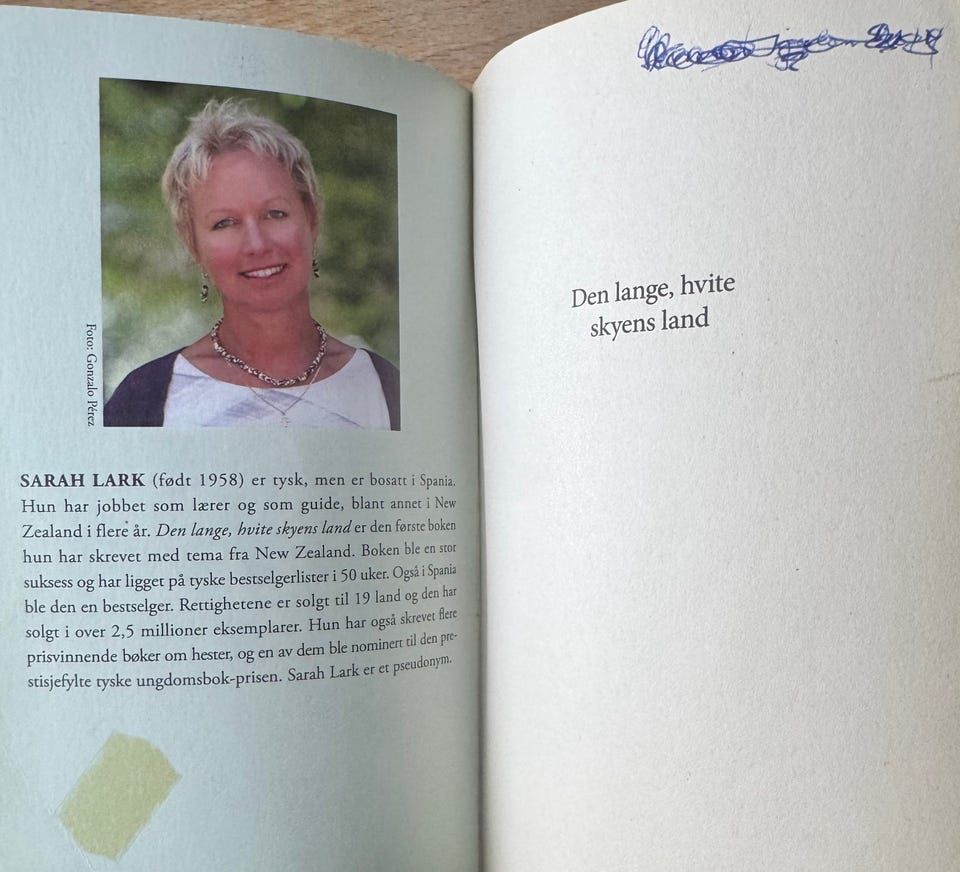 Foto: Gonzalo Pérez
SARAH LARK (født 1958) er tysk, men er bosatt i Spania.
Hun har jobbet som lærer og som guide, blant annet i New
Zealand i flere år. Den lange, hvite skyens land er den første boken
hun har skrevet med tema fra New Zealand. Boken ble en stor
suksess og har ligget på tyske bestselgerlister i 50 uker. Også i Spania
ble den en bestselger. Rettighetene er solgt til 19 land og den har
solgt i over 2,5 millioner eksemplarer. Hun har også skrevet flere
prisvinnende bøker om hester, og en av dem ble nominert til den pre-
stisjefylte tyske ungdomsbok-prisen. Sarah Lark er et pseudonym.
Den lange, hvite
skyens land